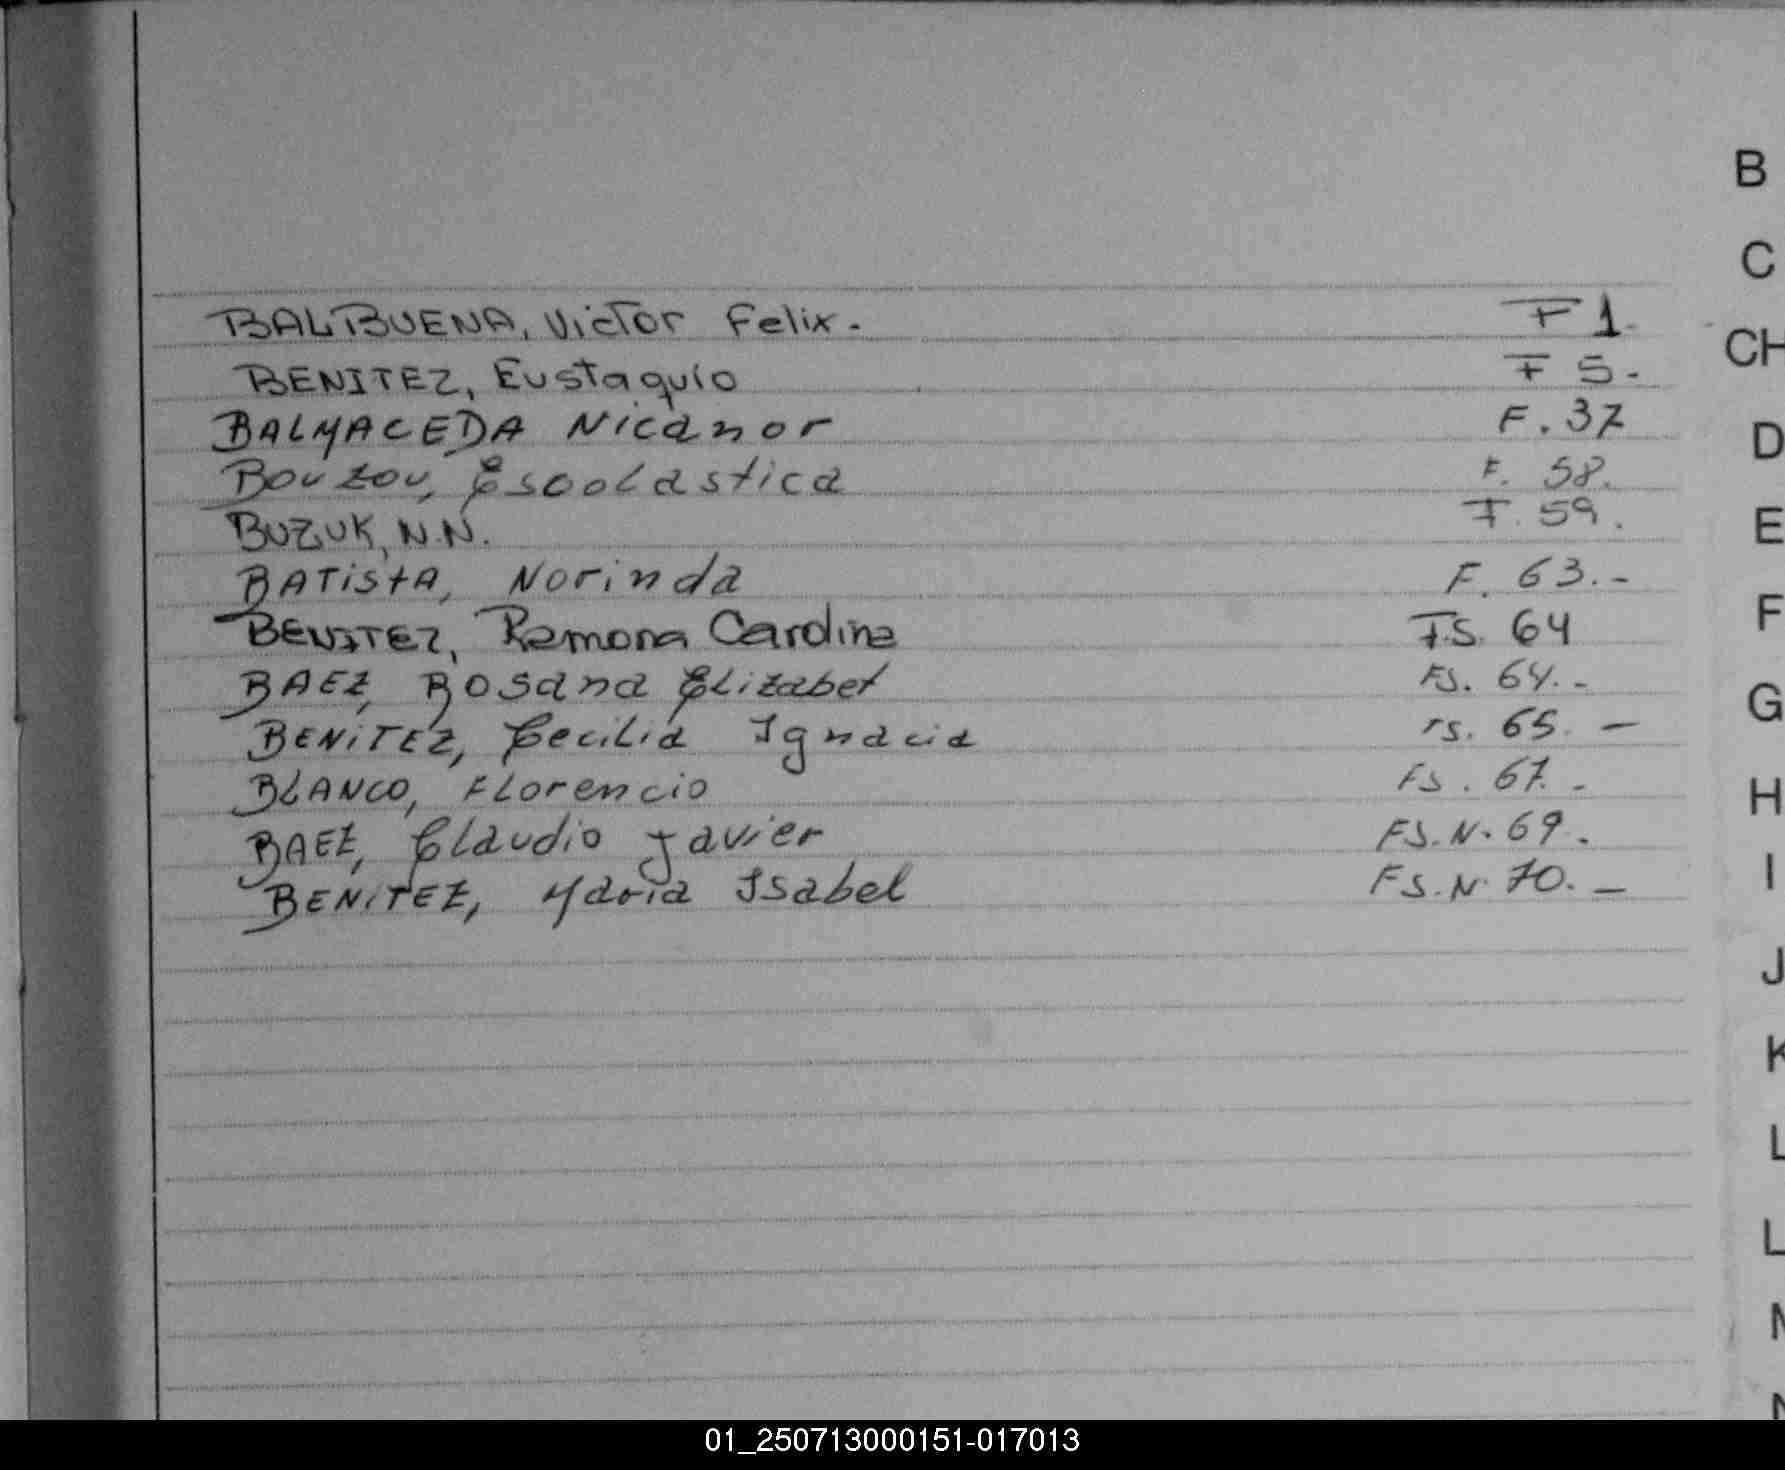 BALBUENA, Victor Felix. F 1.
BENITEZ, Eustaquio F 5.
BALMACEDA Nicanor F. 37
BOUZOU, Escolastica F. 58.
BUZUK, N.N. F. 59.
BATISTA, Norinda F. 63.-
BENITEZ, Ramona Carolina FS. 64
BAEZ, Rosana Elizabet FS. 64.-
BENITEZ, Cecilia Ignacia FS. 65. -
BLANCO, Florencio FS. 67.-
BAEZ, Claudio Javier FS.N. 69.
BENITEZ, Maria Isabel FS.N. 70. -
B
C
CH
D
E
F
G
H
I
J
K
L
L
01_250713000151-017013